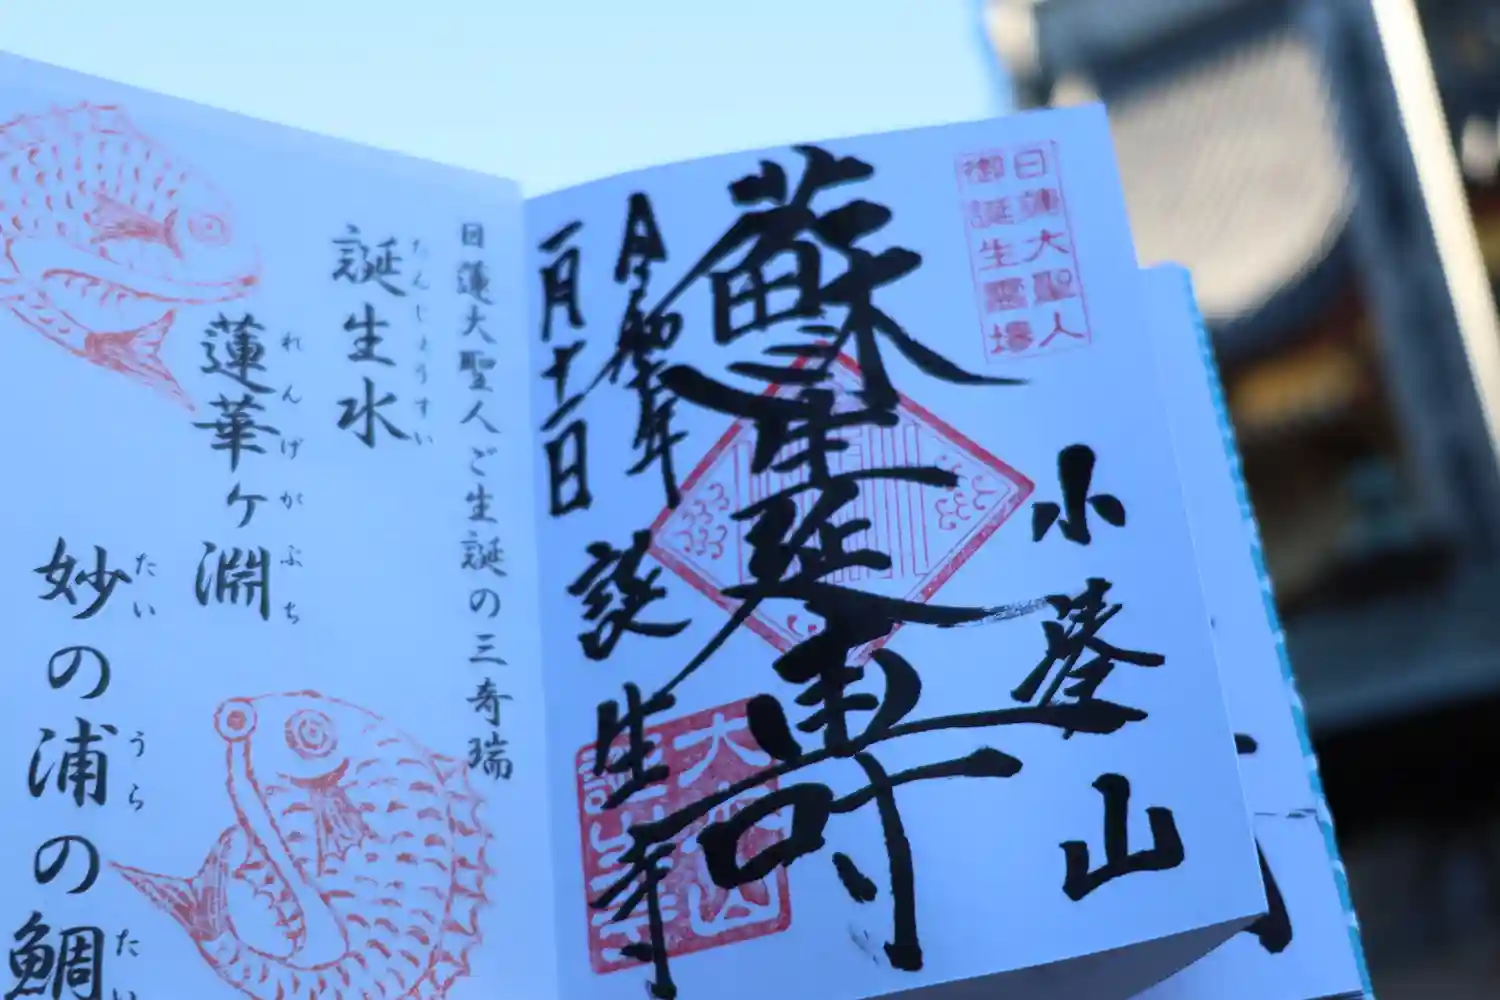 日蓮大聖人
御誕生霊場
小湊山
蘇生延寿
一月十一日
誕生寺
日蓮大聖人ご生誕の三奇瑞
誕生水
たんじょうすい
蓮華ヶ淵
れんげがふち
妙の浦の鯛
たい
うら